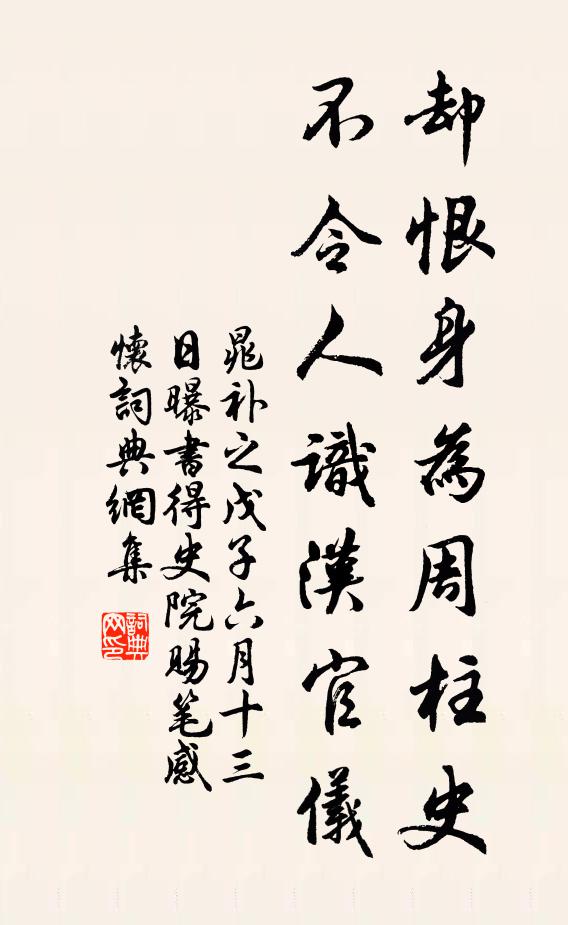 却恨身為周柱史
不令人識漢官儀
晁补之戊子六月十三
日曝書得史院賜笔感
懷詞典網集
詞典
网印